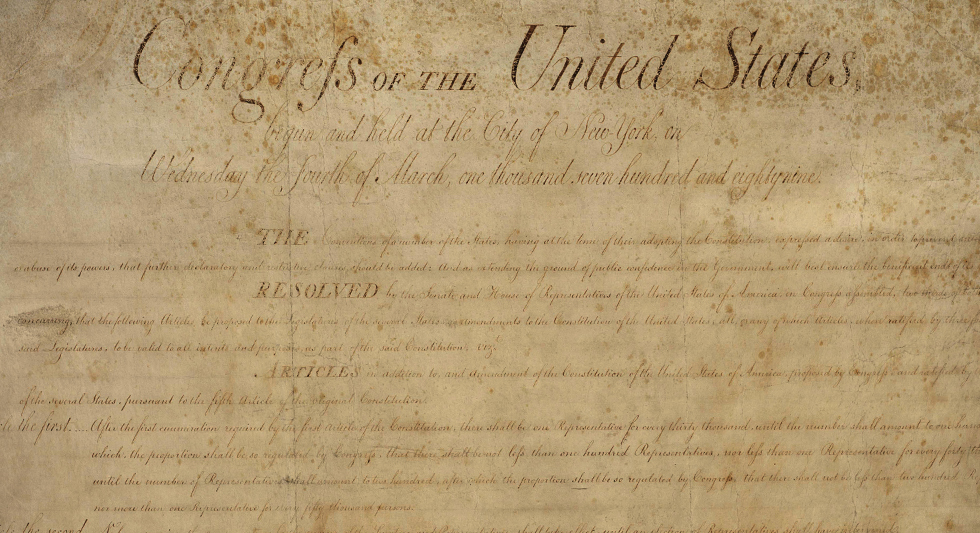 Congreſs OF THE United States,
begun and held at the City of New York, on
Wednesday the fourth of March, one thousand seven hundred and eighty nine.
THE Conventions of a number of the States, having at the time of their adopting the Constitution, expressed a desire, in order to prevent
or abuse of its powers, that further declaratory and restrictive clauses should be added: And as extending the ground of public confidence in the Government, will best ensure the beneficent ends of
RESOLVED by the Senate and House of Representatives of the United States of America, in Congreſs aſsembled, two thirds of
concurring, that the following Articles be proposed to the Legislatures of the several States, as amendments to the Constitution of the United States, all, or any of which Articles, when ratified by three
said Legislatures, to be valid to all intents and purposes, as part of the said Constitution. viz.t
ARTICLES in addition to, and Amendment of the Constitution of the United States of America, proposed by Congreſs, and ratified by
of the several States, pursuant to the fifth Article of the original Constitution.
the first.... After the first enumeration required by the first Article of the Constitution, there shall be one Representative for every thirty thousand, until the number shall amount to one
which, the proportion shall be so regulated by Congreſs, that there shall be not leſs than one hundred Representatives, nor leſs than one Representative for every forty
until the number of Representatives shall amount to two hundred, after which the proportion shall be so regulated by Congreſs, that there shall not be leſs than two hundred
nor more than one Representative for every fifty thousand persons.
the second... No